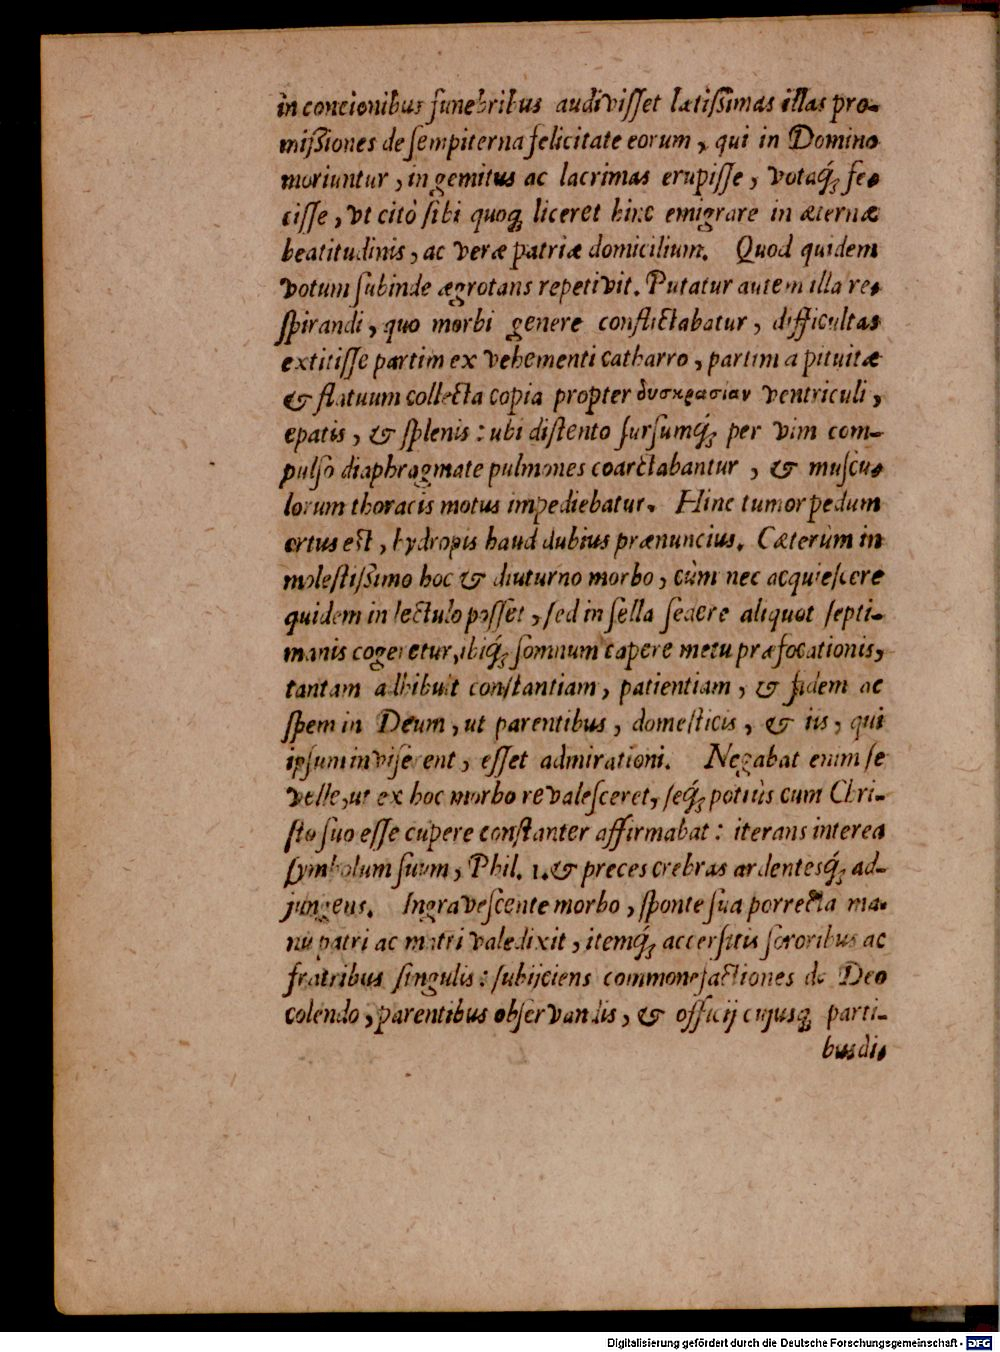 in concionibus funebribus audivisset lætissimas illas pro-
missiones de sempiterna felicitate eorum, qui in Domino
moriuntur, in gemitus ac lacrimas erupisse, votaq́; fe-
cisse, vt citò sibi quoq; liceret hinc emigrare in æternæ
beatitudinis, ac veræ patriæ domicilium. Quod quidem
votum subinde ægrotans repetivit. Putatur autem illa re-
spirandi, quo morbi genere conflictabatur, difficultas
extitisse partim ex vehementi catharro, partim a pituitæ
& flatuum collecta copia propter δυσκρασίαν ventriculi,
epatis, & splenis: ubi distento sursumq́; per vim com-
pulso diaphragmate pulmones coarctabantur, & muscu-
lorum thoracis motus impediebatur. Hinc tumor pedum
ortus est, hydropis haud dubius prænuncius. Cæterùm in
molestissimo hoc & diuturno morbo, cùm nec acquiescere
quidem in lectulo posset, sed in sella sedere aliquot septi-
manis cogeretur, ibiq́; somnum capere metu præfocationis,
tantam adhibuit constantiam, patientiam, & fidem ac
spem in Deum, ut parentibus, domesticis, & iis, qui
ipsum inviserent, esset admirationi. Negabat enim se
velle, ut ex hoc morbo revalesceret, seq́; potiùs cum Chri-
sto suo esse cupere constanter affirmabat: iterans interea
symbolum suum, Phil. 1. & preces crebras ardentesq́; ad-
jungens. Ingravescente morbo, sponte sua porrecta ma-
nu patri ac matri valedixit, itemq́; accersitis sororibus ac
fratribus singulis: subijciens commonefactiones de Deo
colendo, parentibus observandis, & officij cujusq; parti-
bus di-
Digitalisierung gefördert durch die Deutsche Forschungsgemeinschaft - DFG